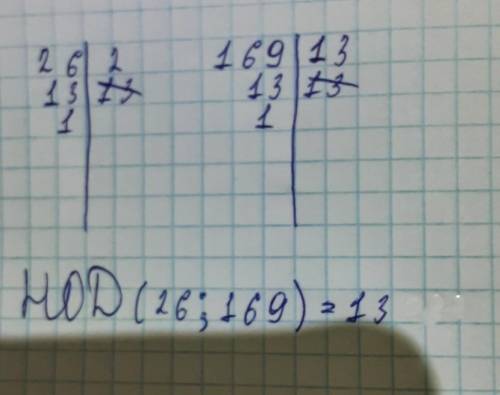 26 | 2 169 | 13
13 | 13 13 | 13
1 | 1 |
НОD (26; 169) = 13